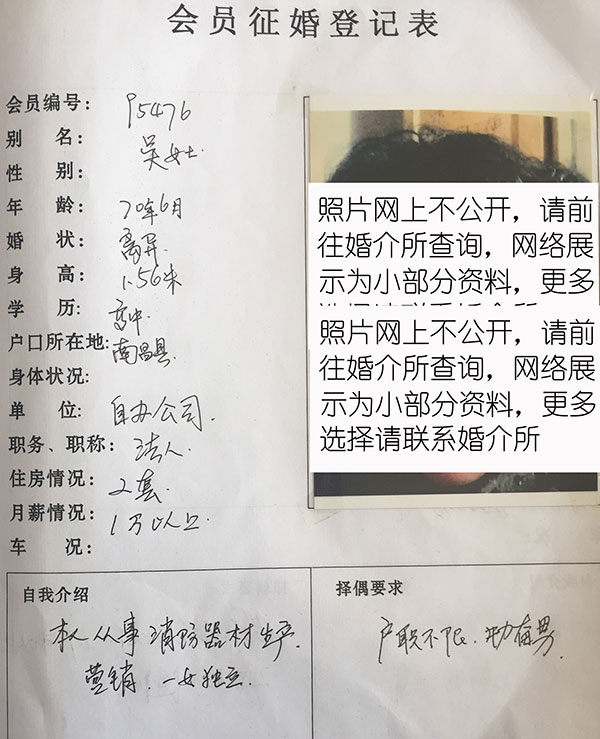 会员征婚登记表
会员编号: 95476
别 名: 吴女士
性 别:
年 龄: 70年6月
婚 状: 离异.
身 高: 1.56米
学 历: 高中
户口所在地: 南昌县.
身体状况:
单 位: 自办公司.
职务、职称: 法人.
住房情况: 2套.
月薪情况: 1万以上.
车 况:
照片网上不公开，请前
往婚介所查询，网络展
示为小部分资料，更多
照片网上不公开，请前
往婚介所查询，网络展
示为小部分资料，更多
选择请联系婚介所
自我介绍
本人从事消防器材生产.
营销. 一女独立.
择偶要求
户 不限. 勤奋男.